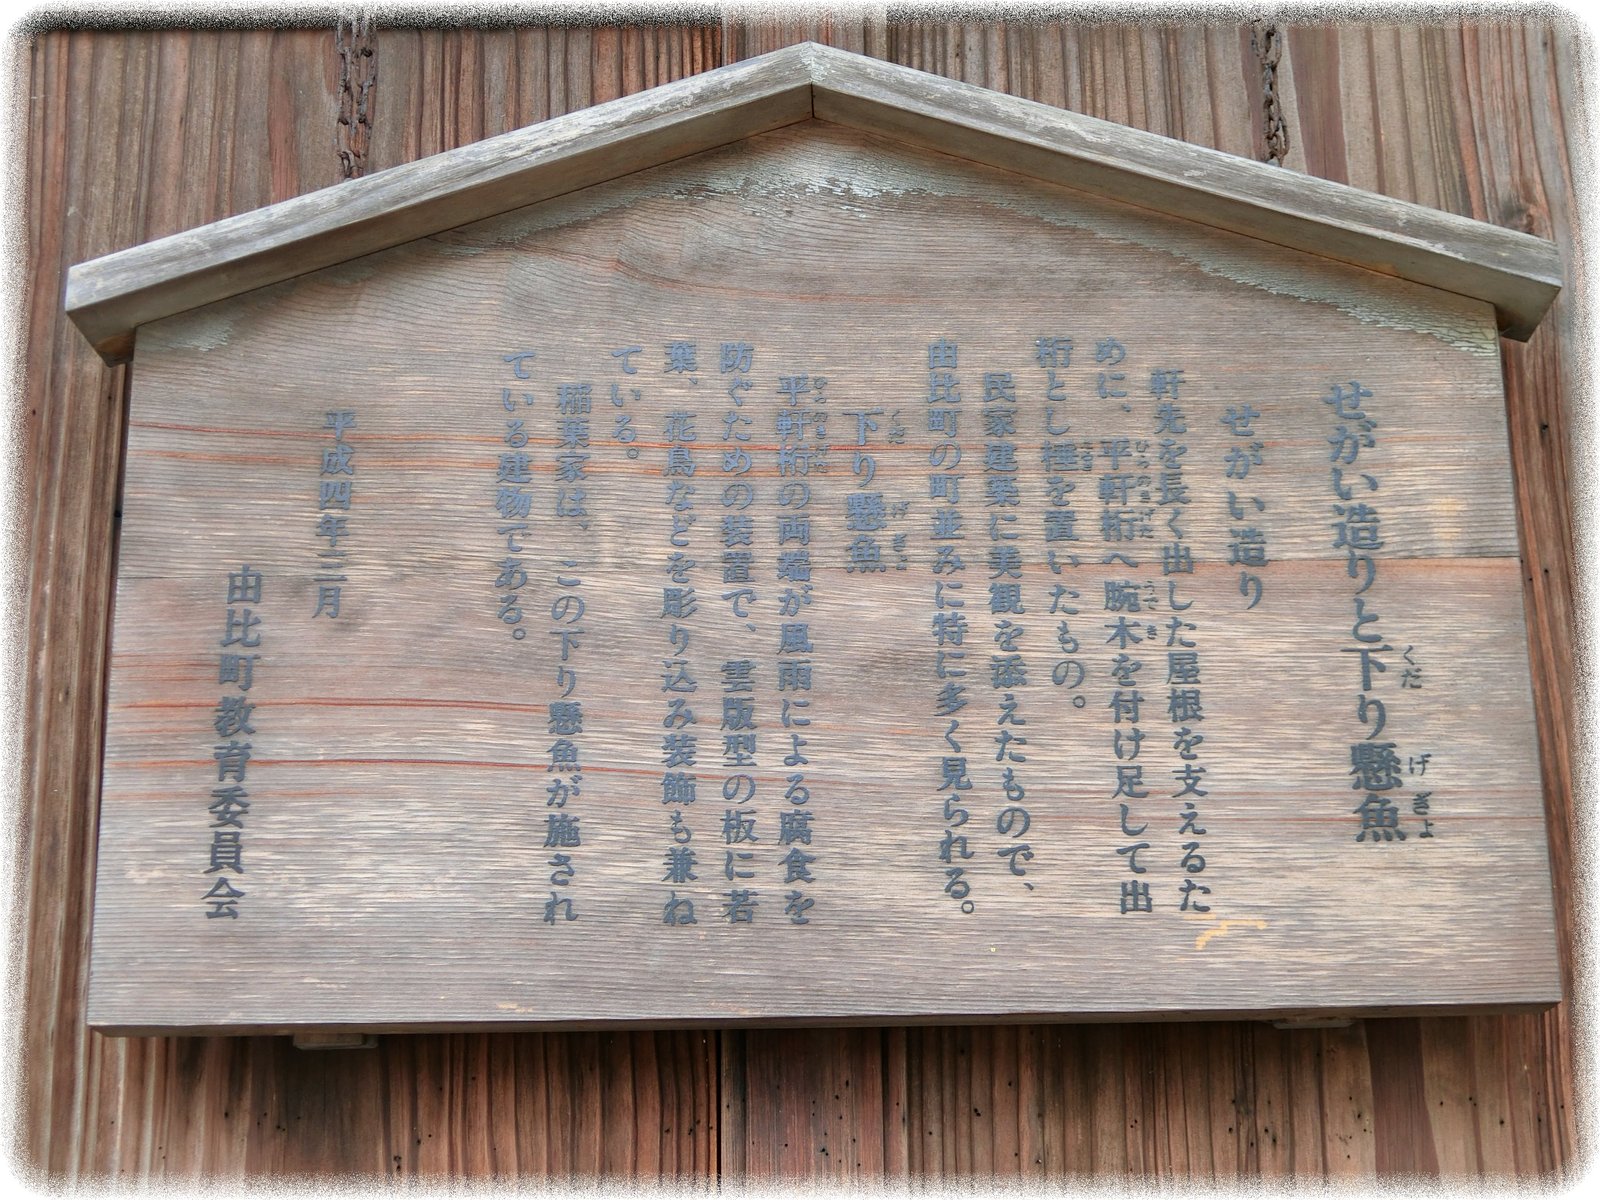 せがい造りと下り懸魚
せがい造り
軒先を長く出した屋根を支えるた
めに、平軒桁へ腕木を付け足して出
桁とし棰を置いたもの。
民家建築に美観を添えたもので、
由比町の町並みに特に多く見られる。
下り懸魚
平軒桁の両端が風雨による腐食を
防ぐための装置で、雲版型の板に若
葉、花鳥などを彫り込み装飾も兼ね
ている。
稲葉家は、この下り懸魚が施され
ている建物である。
平成四年三月
由比町教育委員会